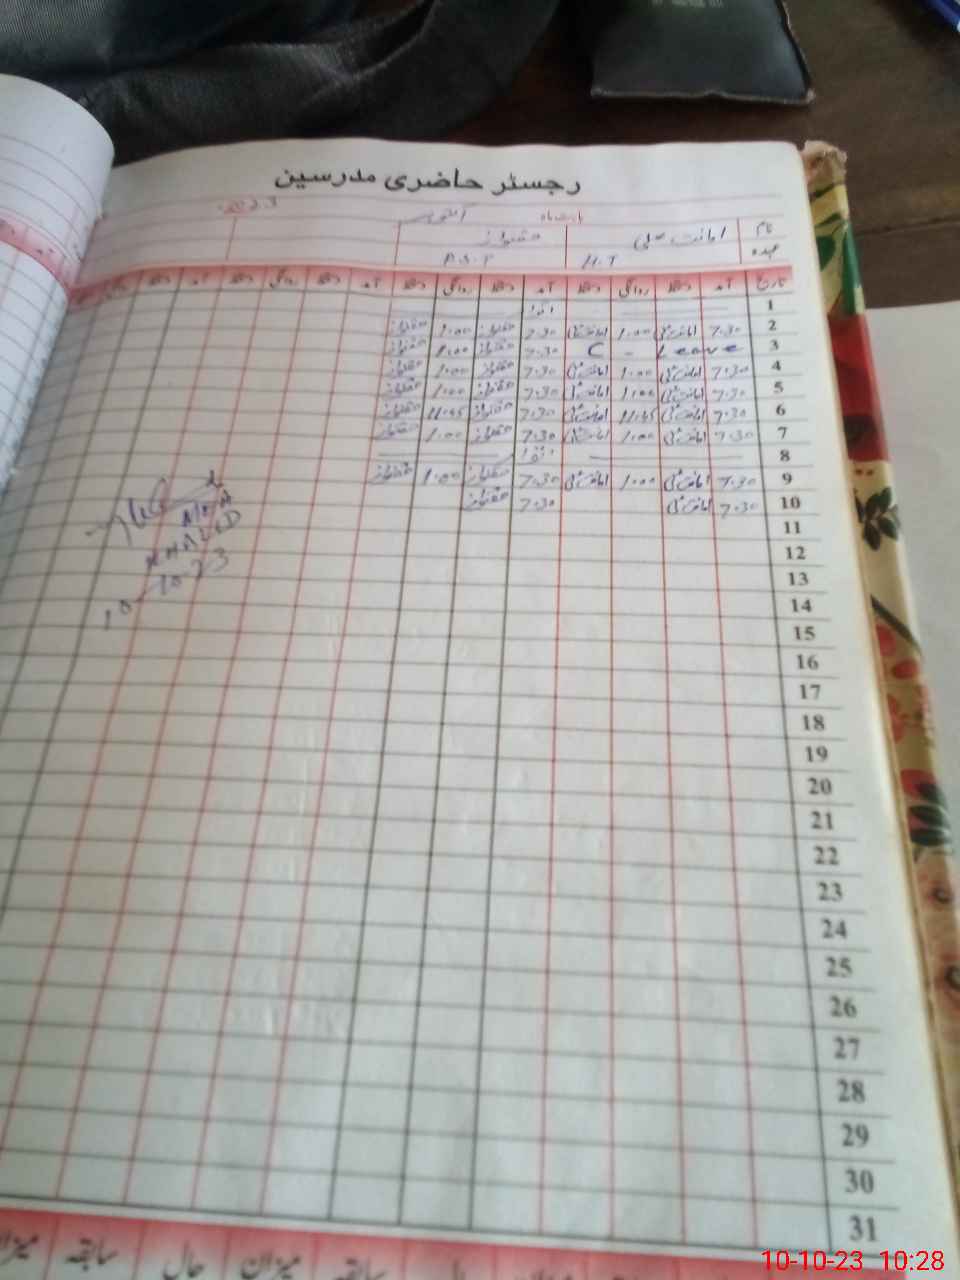 رجسٹر حاضری مدرسین
بابت ماہ اکتوبر 2023
نام امانت علی
عہدہ H.T P.S.T
تاریخ آمد دستخط روانگی دستخط آمد دستخط روانگی دستخط آمد دستخط روانگی دستخط آمد دستخط
1 اتوار
2 7.30 امانت علی 1.00 امانت علی 7.30 1.00
3 C - Leave 7.30 1.00
4 7.30 امانت علی 1.00 امانت علی 7.30 1.00
5 7.30 امانت علی 1.00 امانت علی 7.30 1.00
6 7.30 امانت علی 11.45 امانت علی 7.30 11.45
7 7.30 امانت علی 1.00 امانت علی 7.30 1.00
8 اتوار
9 7.30 امانت علی 1.00 امانت علی 7.30 1.00
10 7.30 امانت علی 7.30
KHALID
10-10-23
11
12
13
14
15
16
17
18
19
20
21
22
23
24
25
26
27
28
29
30
31
سابقہ میزان حال سابقہ میزان
10-10-23 10:28